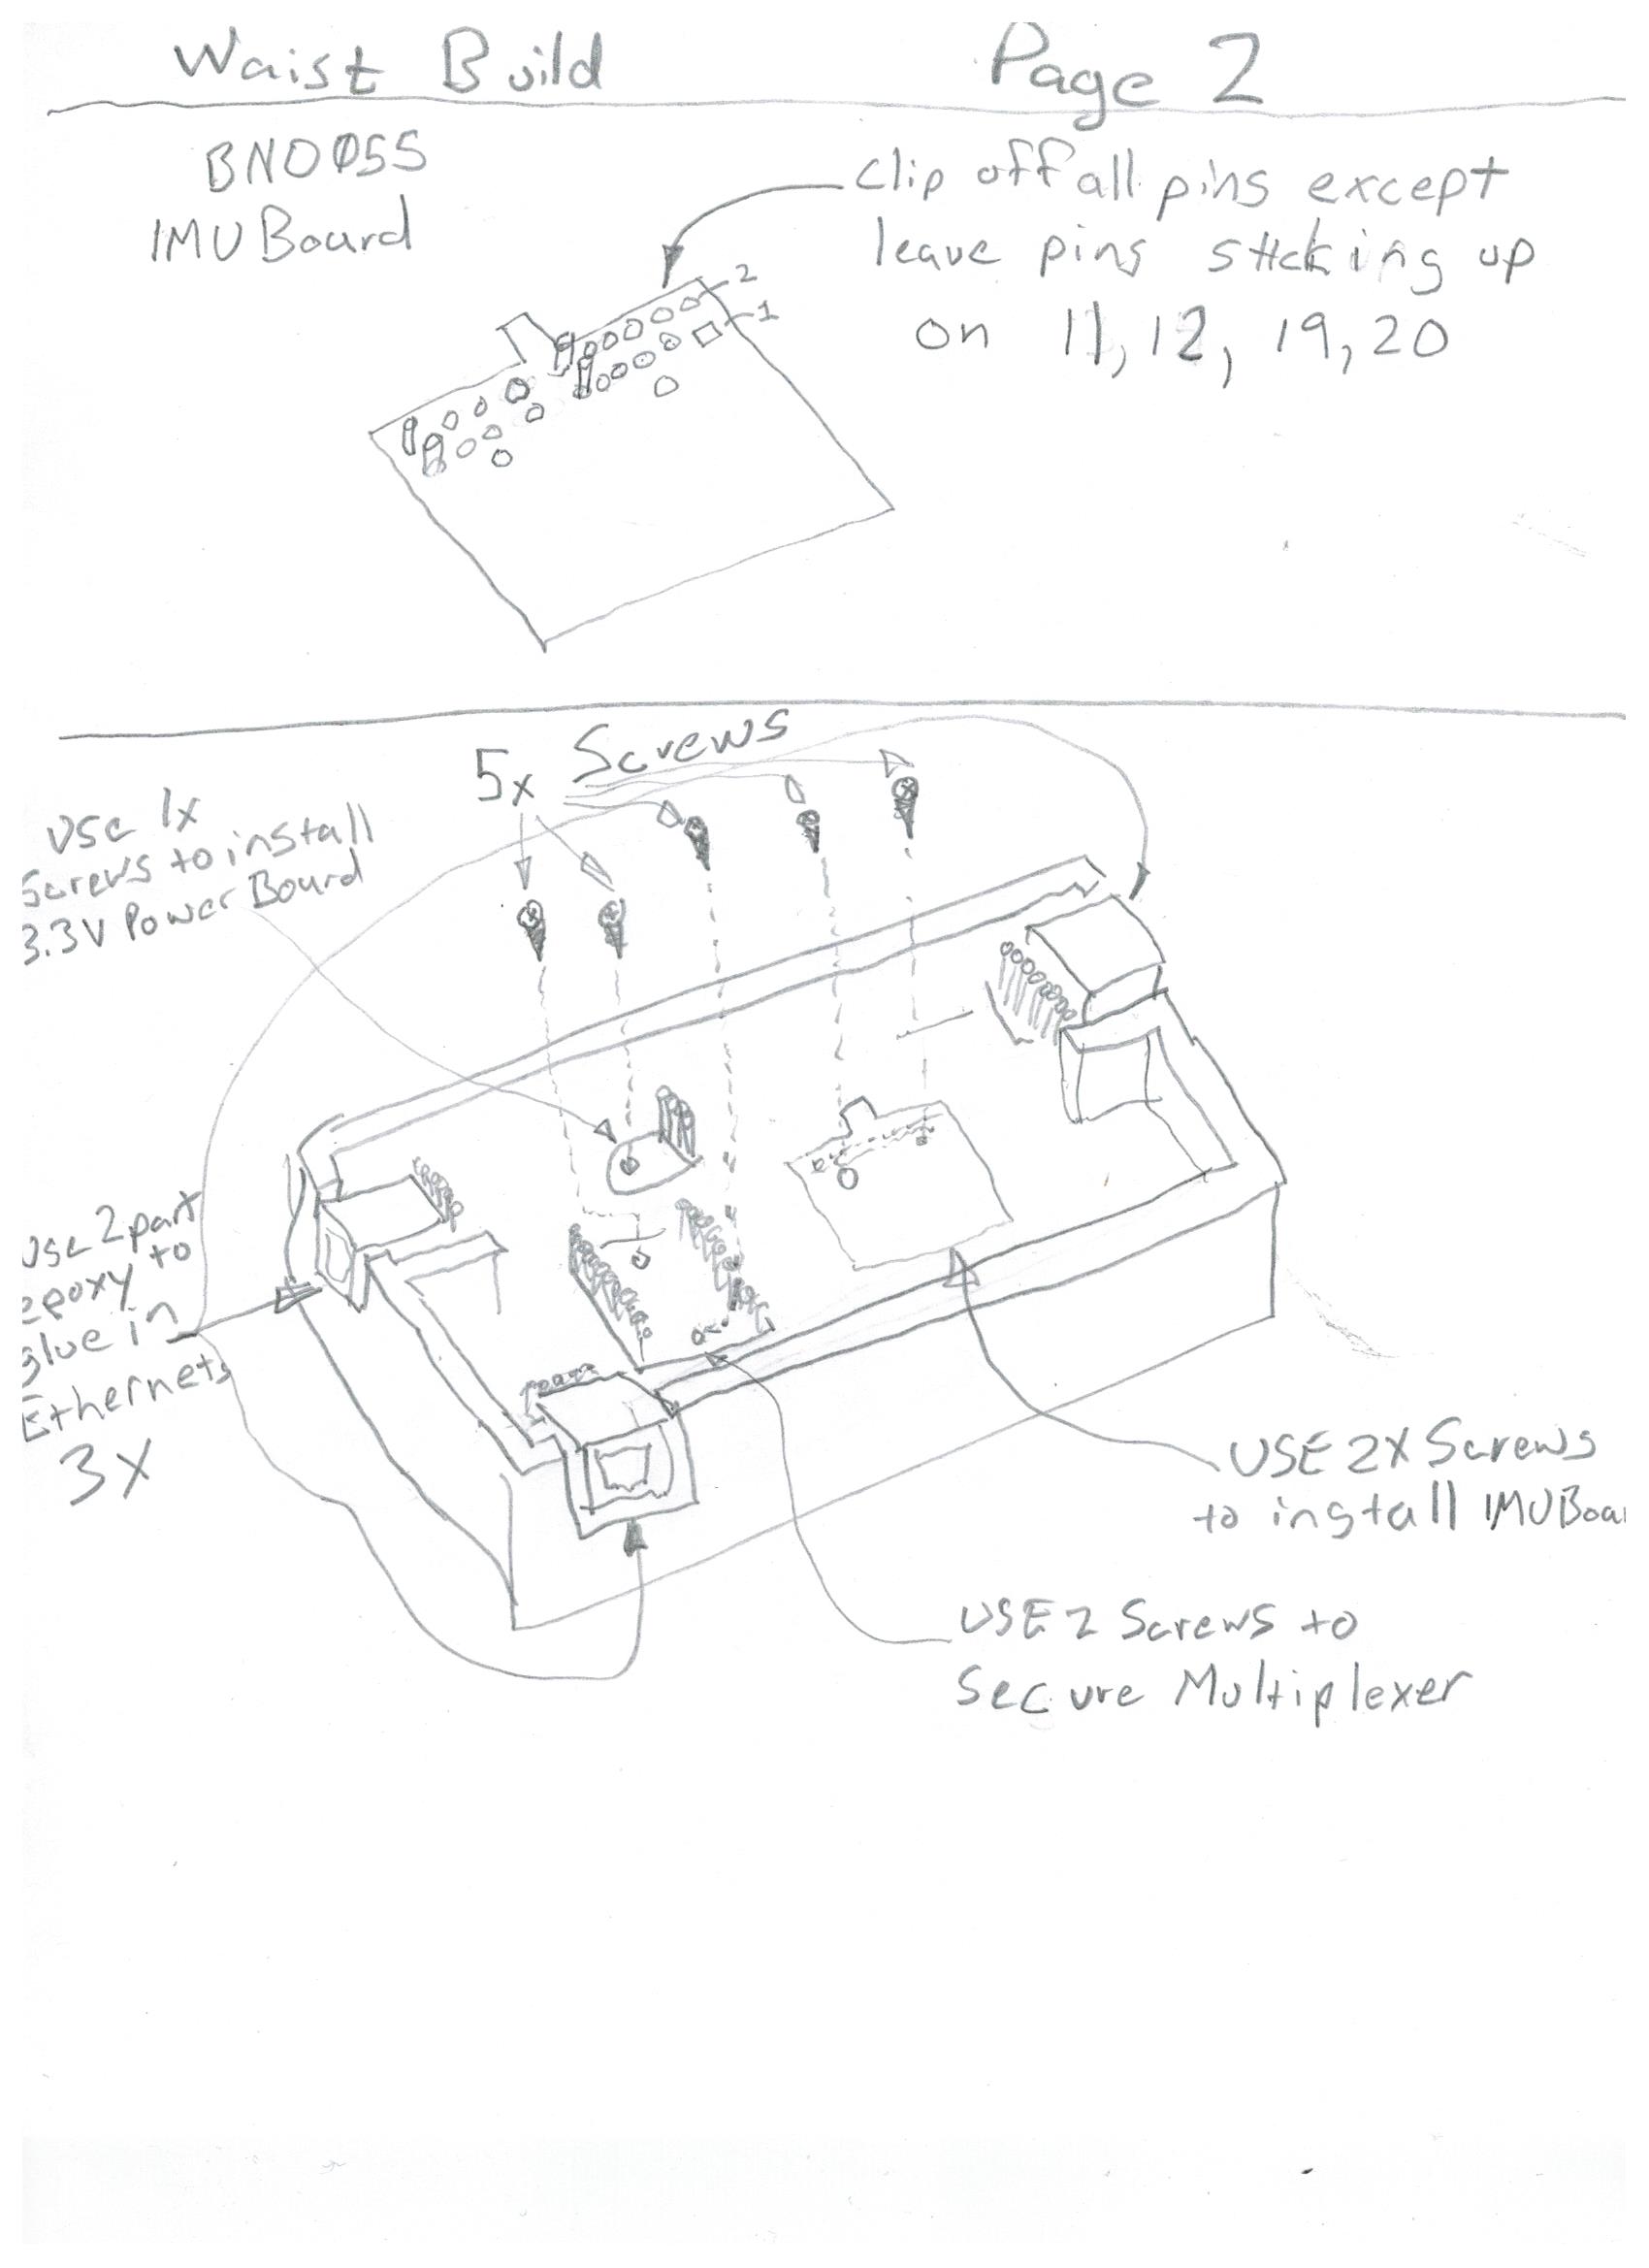 Waist Build
Page 2
BNO055
IMU Board
Clip off all pins except
leave pins sticking up
on 11, 12, 19, 20
2
1
5x Screws
Use 1x
Screws to install
3.3V Power Board
Use 2 part
epoxy to
glue in
Ethernets
3X
USE 2X Screws
to install IMU Boar
USE 2 Screws to
Secure Multiplexer